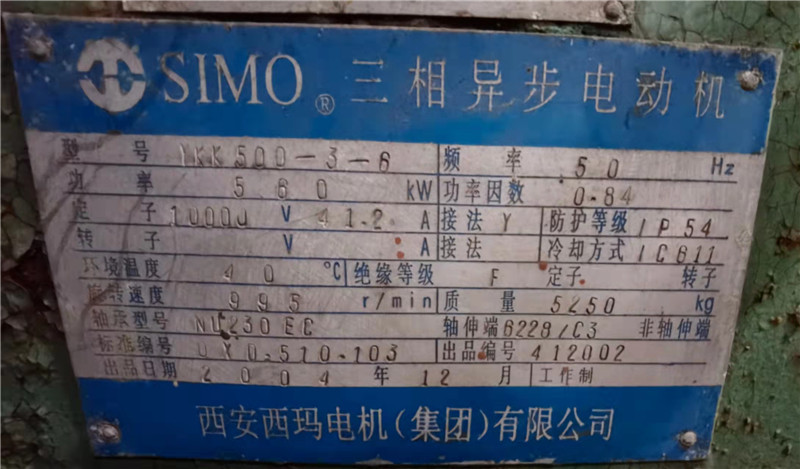 SIMO® 三相异步电动机
型号 YKK500-3-6 频率 50 Hz
功率 560 kW 功率因数 0.84
定子 10000 V 41.2 A 接法 Y 防护等级 IP54
转子 V A 接法 冷却方式 IC611
环境温度 40 ℃ 绝缘等级 F 定子 转子
旋转速度 995 r/min 质量 5250 kg
轴承型号 NU230EC 轴伸端 6228/C3 非轴伸端
标准编号 0.510.103 出品编号 412002
出品日期 2004 年 12 月 工作制
西安西玛电机(集团)有限公司